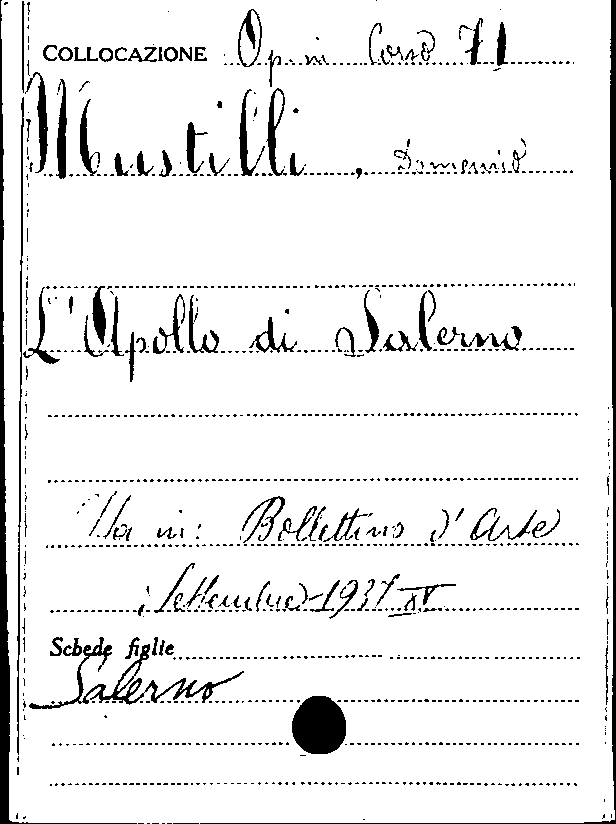 COLLOCAZIONE Op. in Corso 71
Mustilli, Domenico
L'Apollo di Salerno
Sta in: Bollettino d'Arte
Settembre 1937 XV
Schede figlie
Salerno